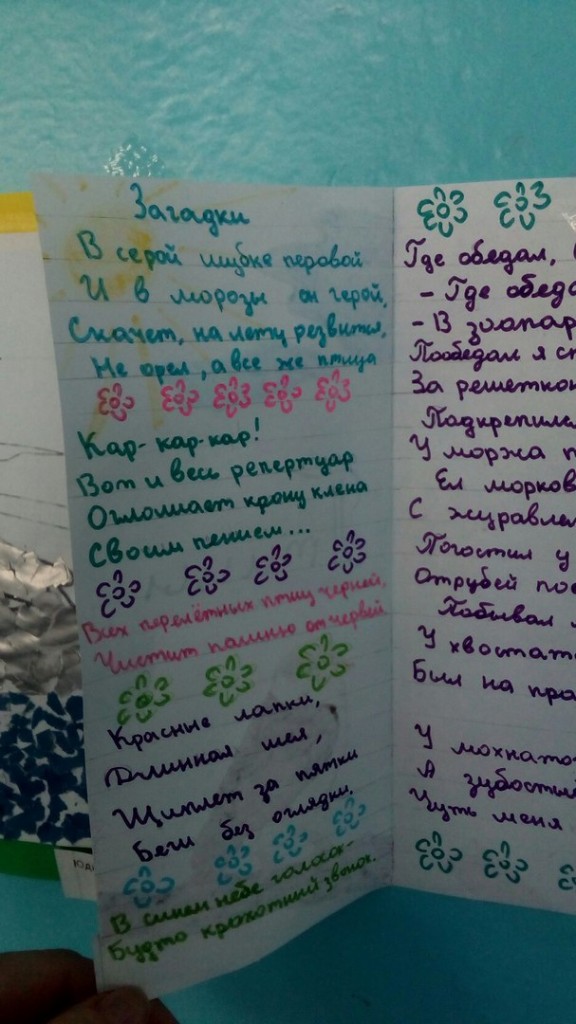 Загадки
В серой шубке перовой
И в морозы он герой,
Скачет, на лету резвится,
Не орел, а все же птица
Кар-кар-кар!
Вот и весь репертуар
Оглошает крону клена
Своим пением...
Всех перелётных птиц черней,
Чистит пашню от червей
Красные лапки,
Длинная шея,
Щиплет за пятки
Беги без оглядки.
В синем небе голосок-
Будто крохотный звонок.
Где обедал,
- Где обеда
- В зоопар
Пообедал я
За решеткой
Подкрепился
У моржа
Ел морков
С журавлем
Погостил у
Отрубей
Побывал
У хвостато
Был на пра
У мохнато
А зубастый
Чуть меня
ЮДИ